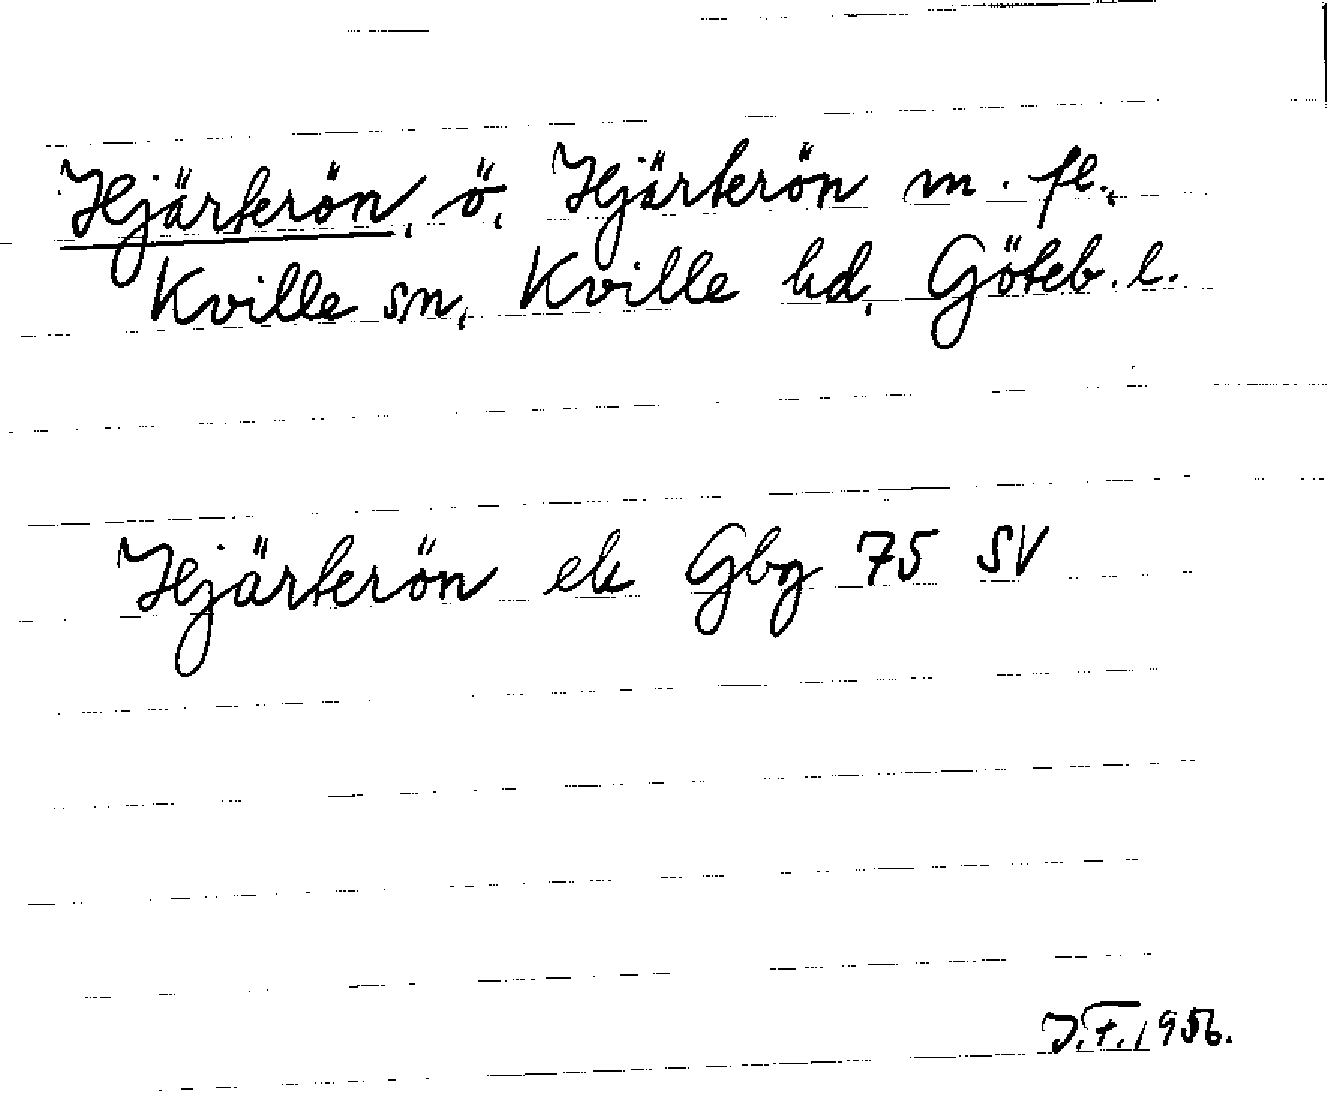 Hjärterön, ö, Hjärterön m. fl.,
Kville sn, Kville hd, Göteb. l.
Hjärterön ek Gbg 75 SV
J.F. 1956.